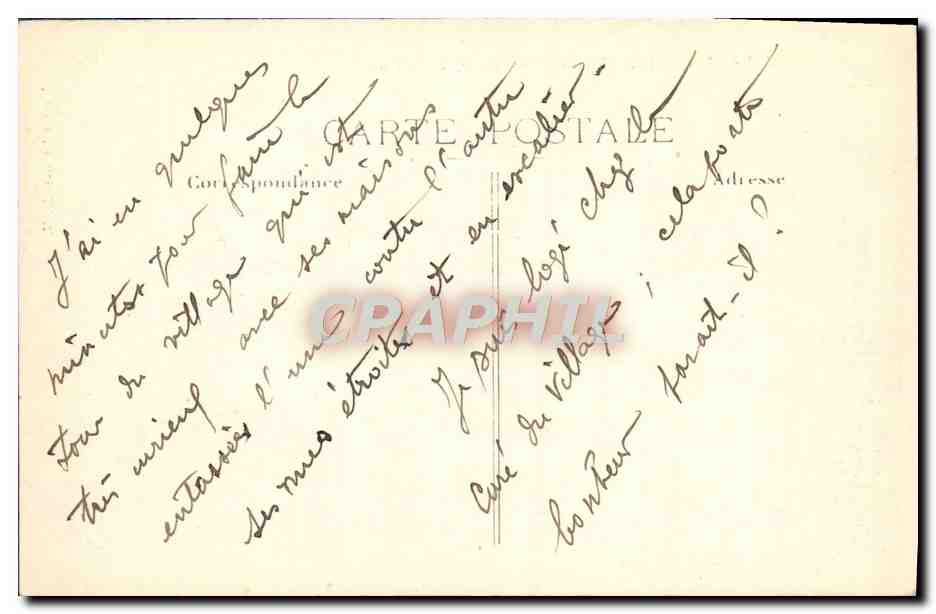 CARTE POSTALE
Correspondance
Adresse
J'ai eu quelques
minutes pour faire le
tour du village qui est
très curieux avec ses maisons
entassées l'une contre l'autre
ses rues étroites et en escalier.
Je suis logé chez le
Curé du village ; cela porte
bonheur parait-il !
CPAPHIL